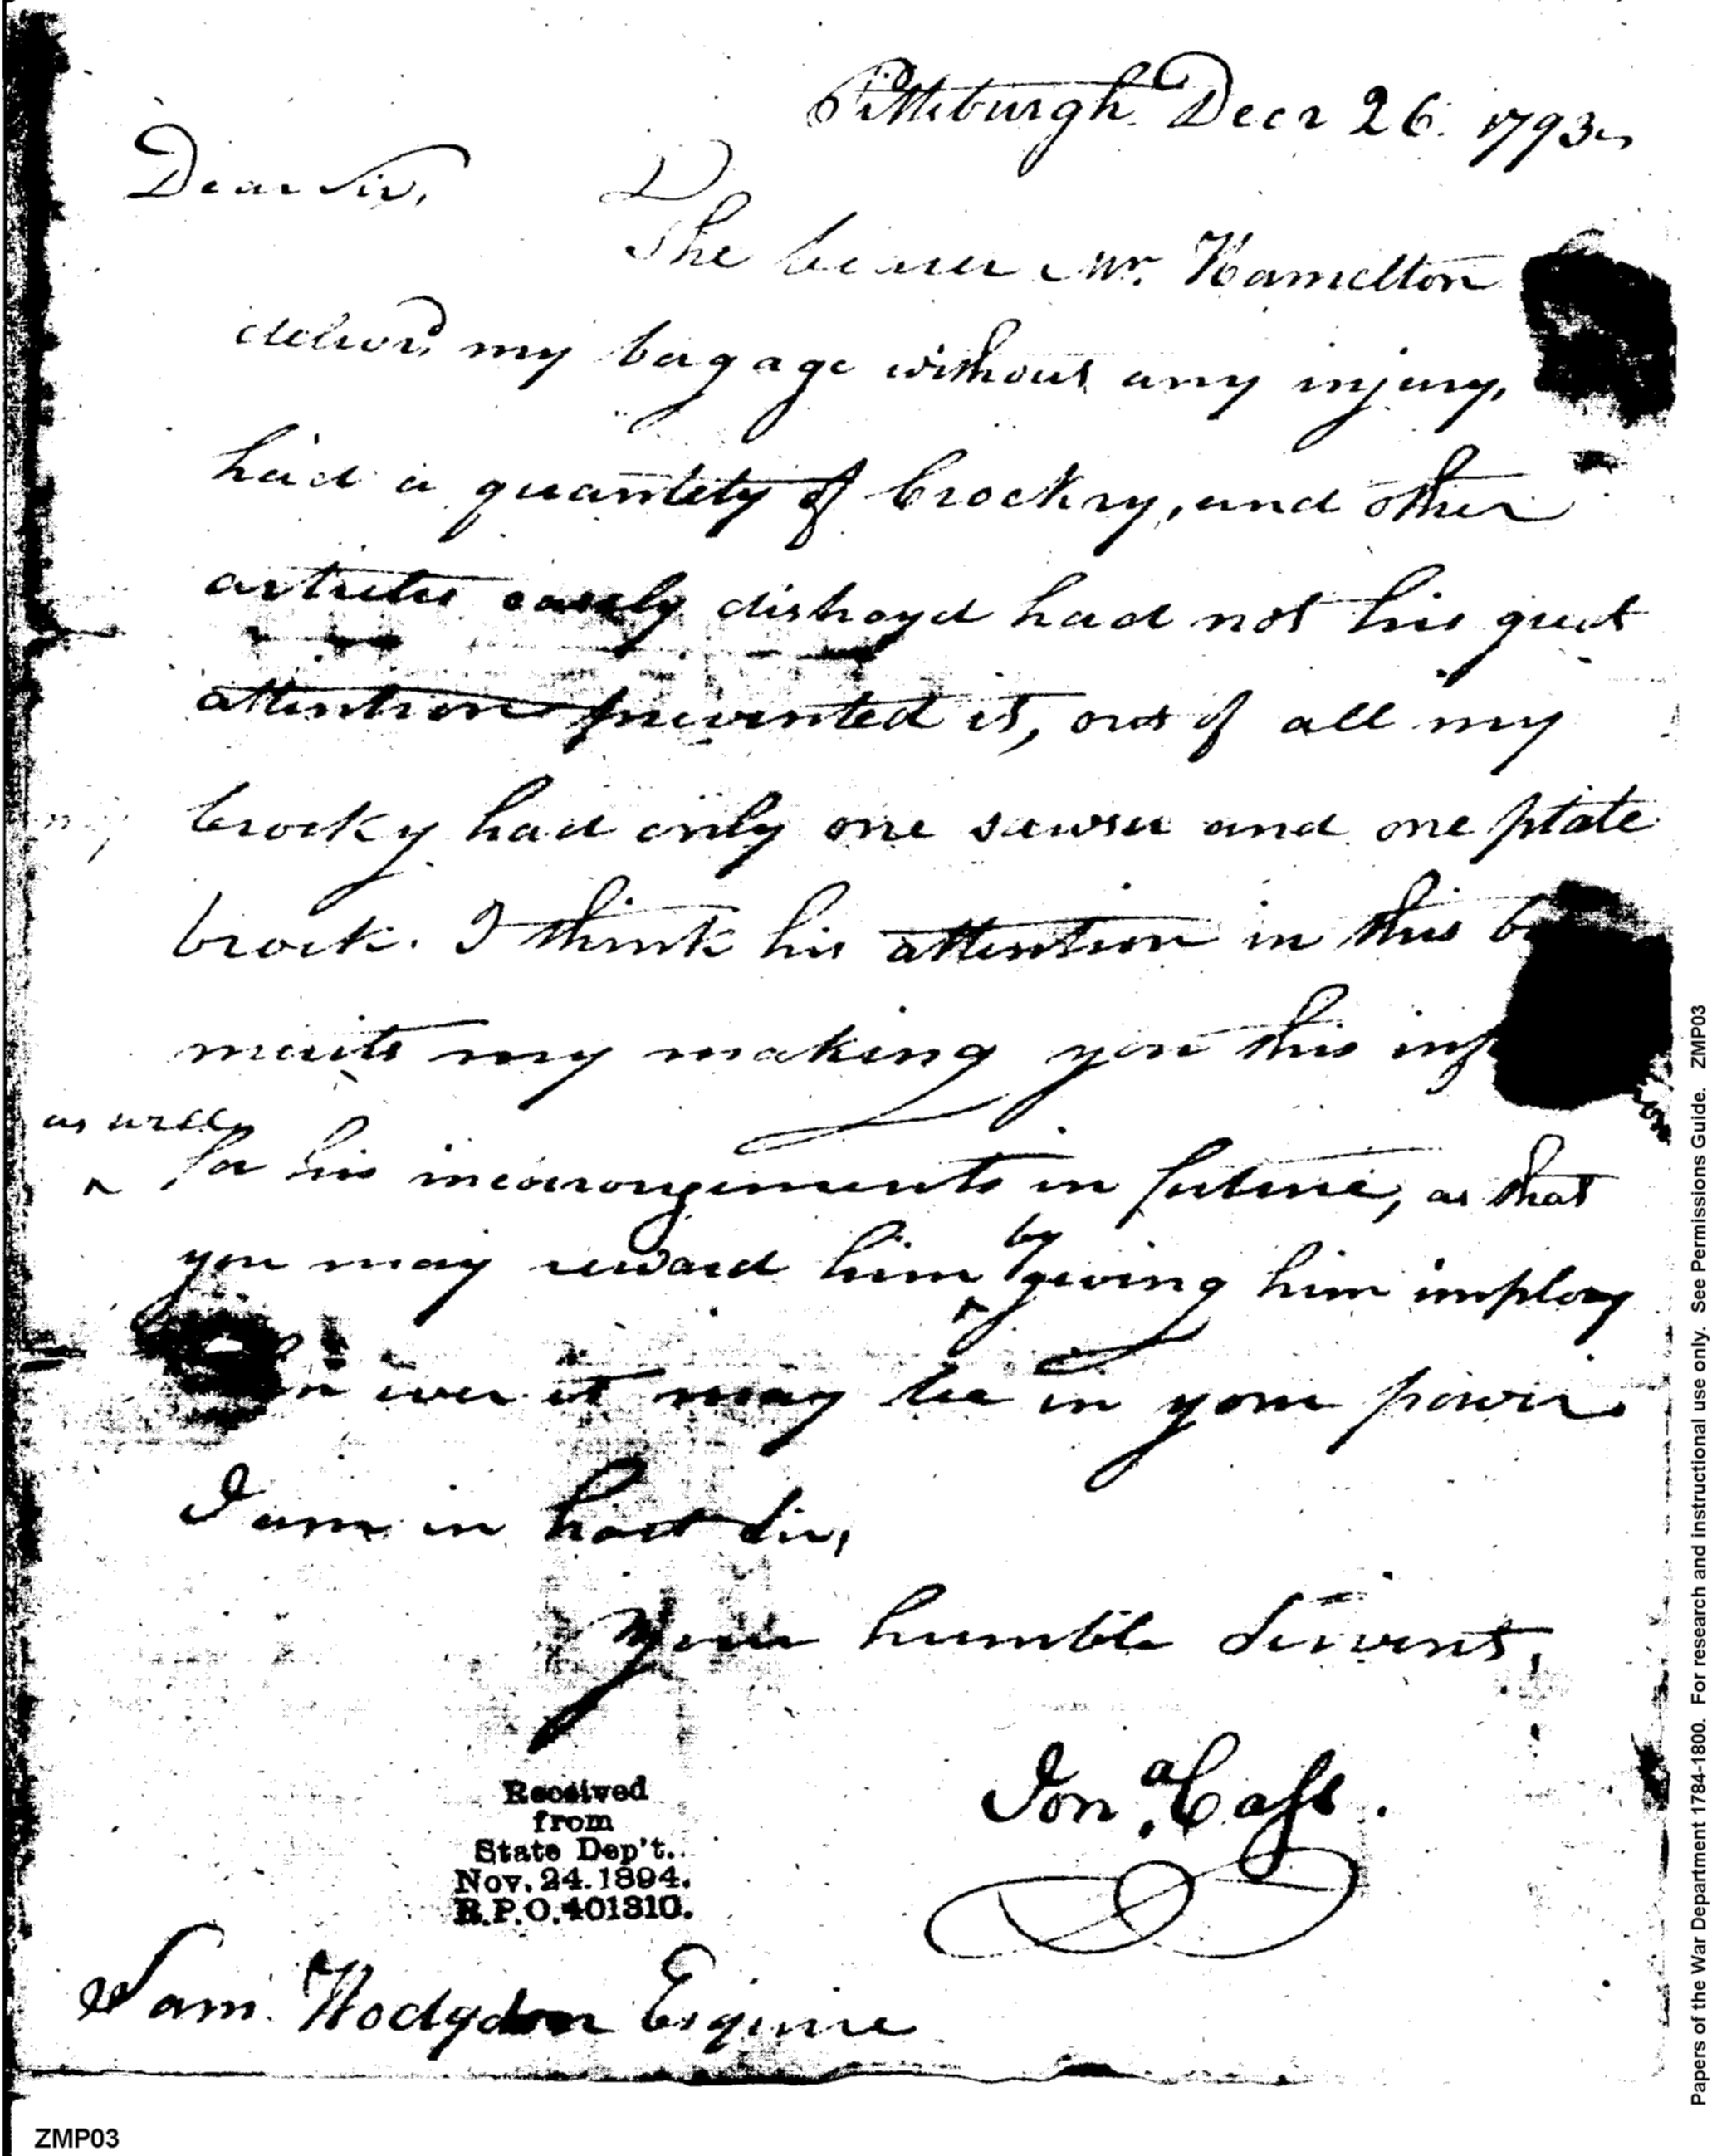 Pittsburgh. Decr 26. 1793
Dear Sir,
The bearer Mr. Hamelton
deliverd my bagage without any injury,
had a quantety of Crockry, and other
articles easely distroyd had not his great
attention prevented it, out of all my
Crocky had only one sawser and one plate
brock. I think his attention in this
merits my making you this
as well
^ for his incouragements in future, as that
by
you may reward him ^ giving him imploy
ever it may be in your power
I am in hast Sir,
Your humble Servent,
Jona. Cass.
Received
from
State Dep't.
Nov. 24. 1894.
R.P.O. 401310.
Sam. Hodgdon Esquire
ZMP03
Papers of the War Department 1784-1800. For research and instructional use only. See Permissions Guide. ZMP03